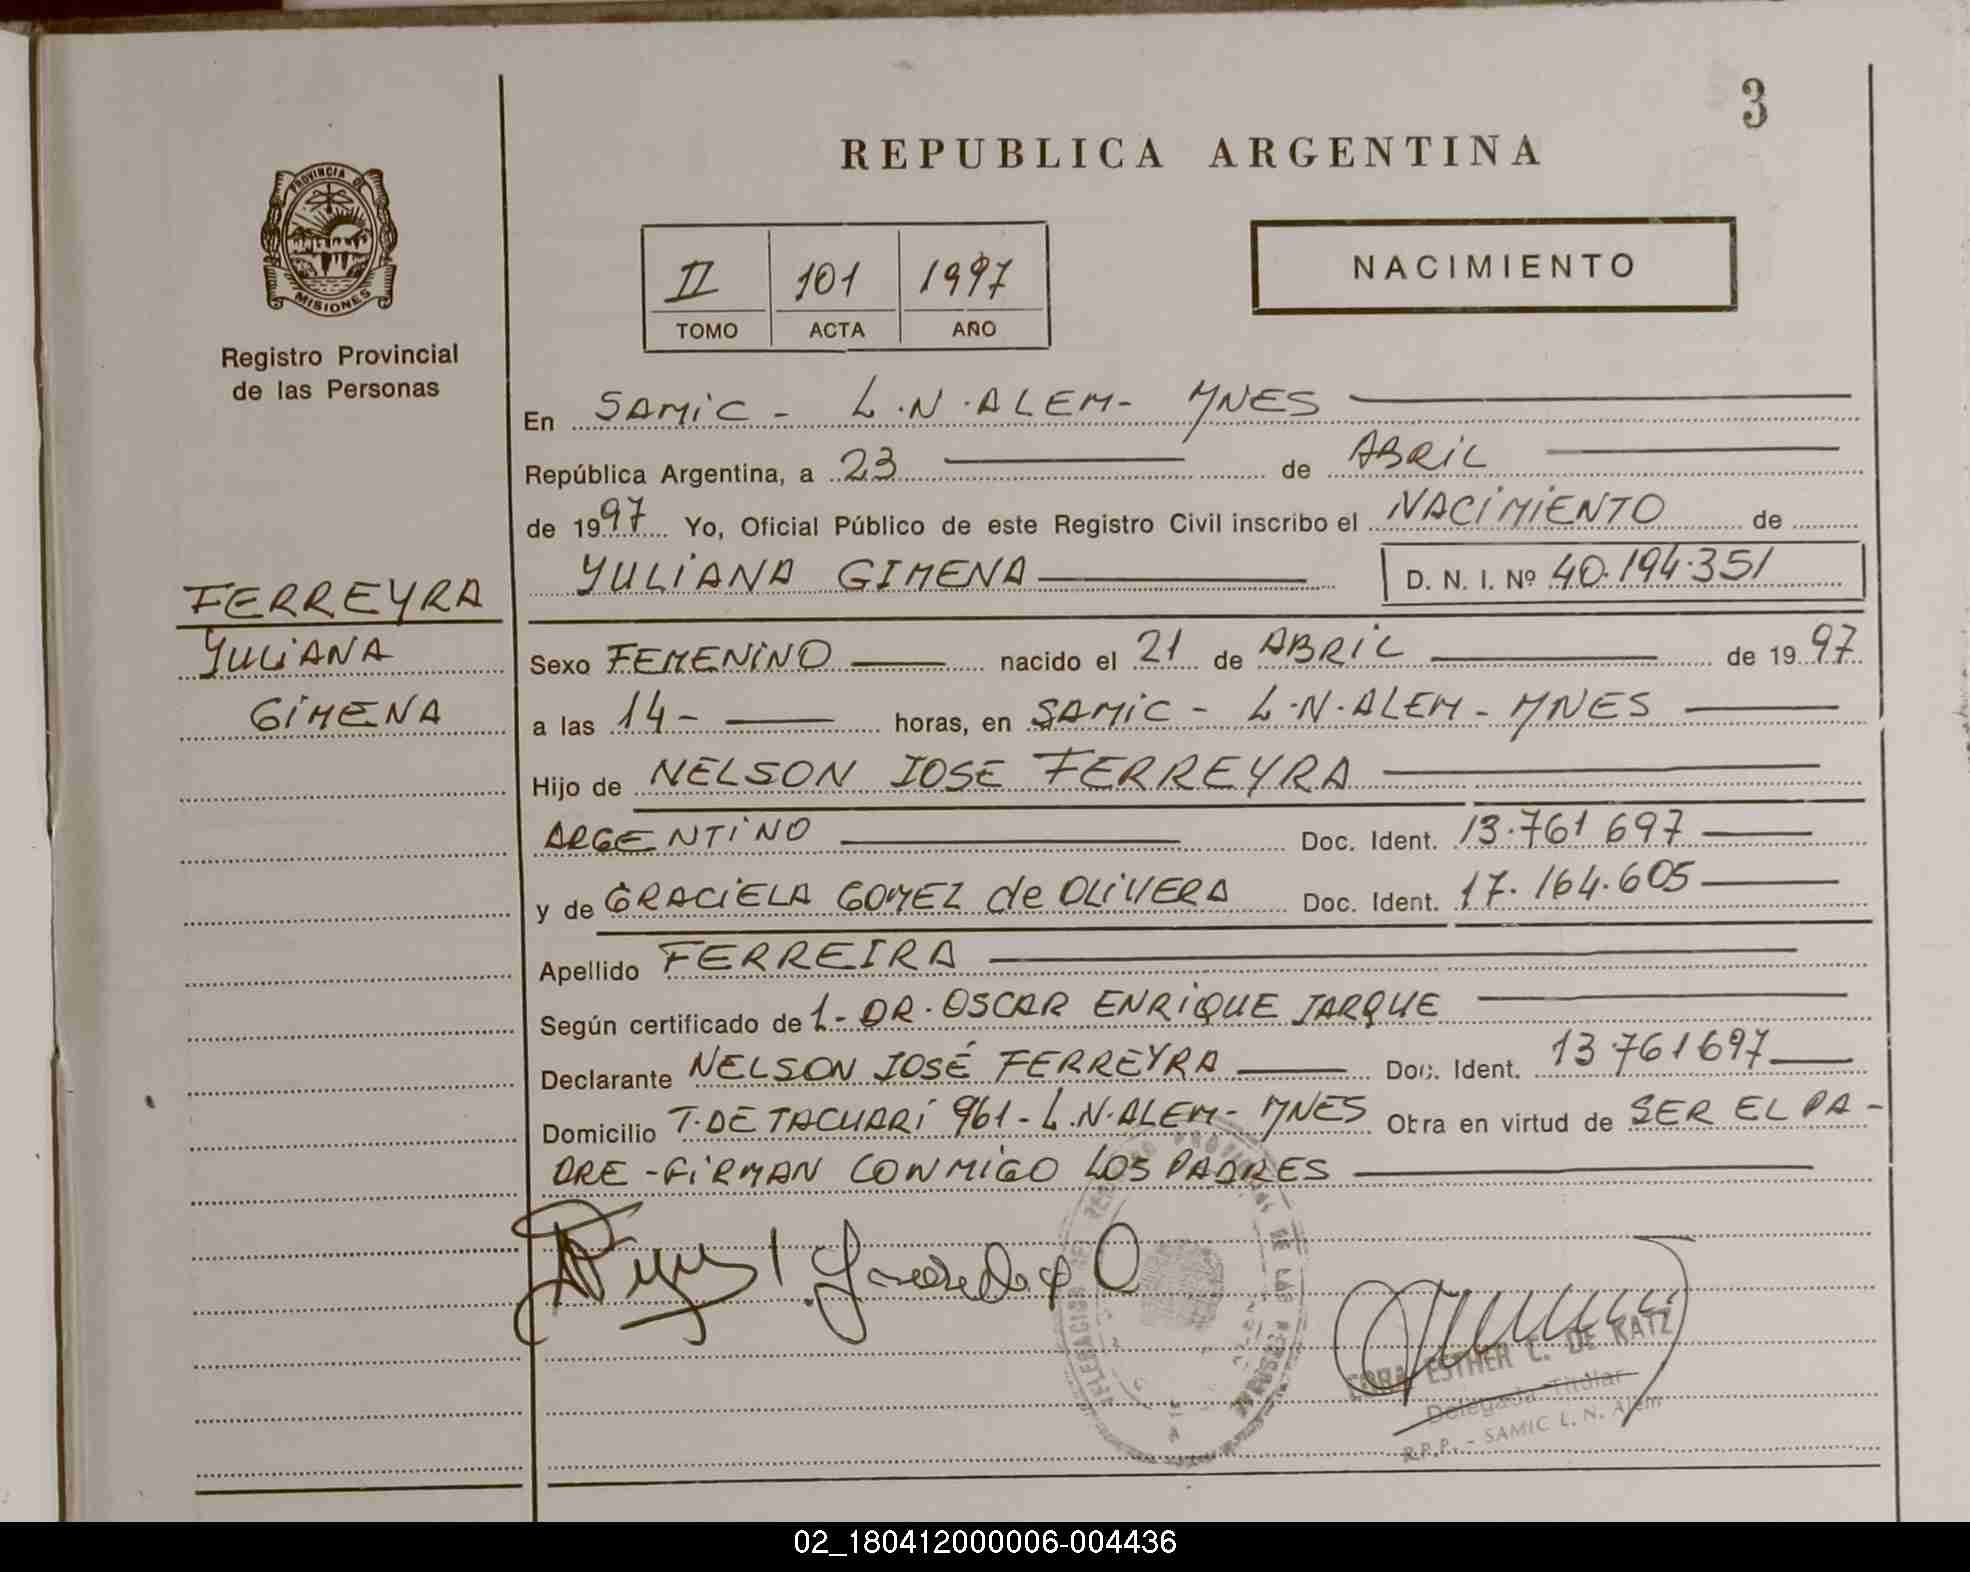 3
REPUBLICA ARGENTINA
PROVINCIA DE
MISIONES
Registro Provincial
de las Personas
II 101 1997
TOMO ACTA AÑO
NACIMIENTO
En SAMIC - L.N.ALEM- MNES
República Argentina, a 23 de ABRIL
de 1997 Yo, Oficial Público de este Registro Civil inscribo el NACIMIENTO de
YULIANA GIMENA D. N. I. Nº 40.194.351
FERREYRA
YULIANA
GIMENA
Sexo FEMENINO nacido el 21 de ABRIL de 1997
a las 14- horas, en SAMIC - L.N.ALEM - MNES
Hijo de NELSON JOSE FERREYRA
ARGENTINO Doc. Ident. 13.761 697
y de GRACIELA GOMEZ de OLIVERA Doc. Ident. 17.164.605
Apellido FERREIRA
Según certificado de 1- DR. OSCAR ENRIQUE JARQUE
Declarante NELSON JOSÉ FERREYRA Doc. Ident. 13.761697
Domicilio T. DE TACUARÍ 961 - L.N.ALEM- MNES Obra en virtud de SER EL PA-
DRE - FIRMAN CONMIGO LOS PADRES
ESTHER C. DE KATZ
Delegada Titular
R.P.P. - SAMIC L. N. Alem
02_180412000006-004436